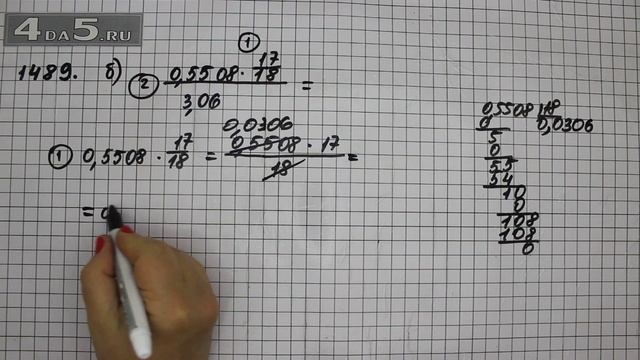 4DA5.RU
1489. б) ② (0,5508 · 17/18) / 3,06 =
①
① 0,5508 · 17/18 = (0,5508 · 17) / 18 =
0,0306
= 0
0,5508 | 18
0 0,0306
5
0
55
54
10
0
108
108
0